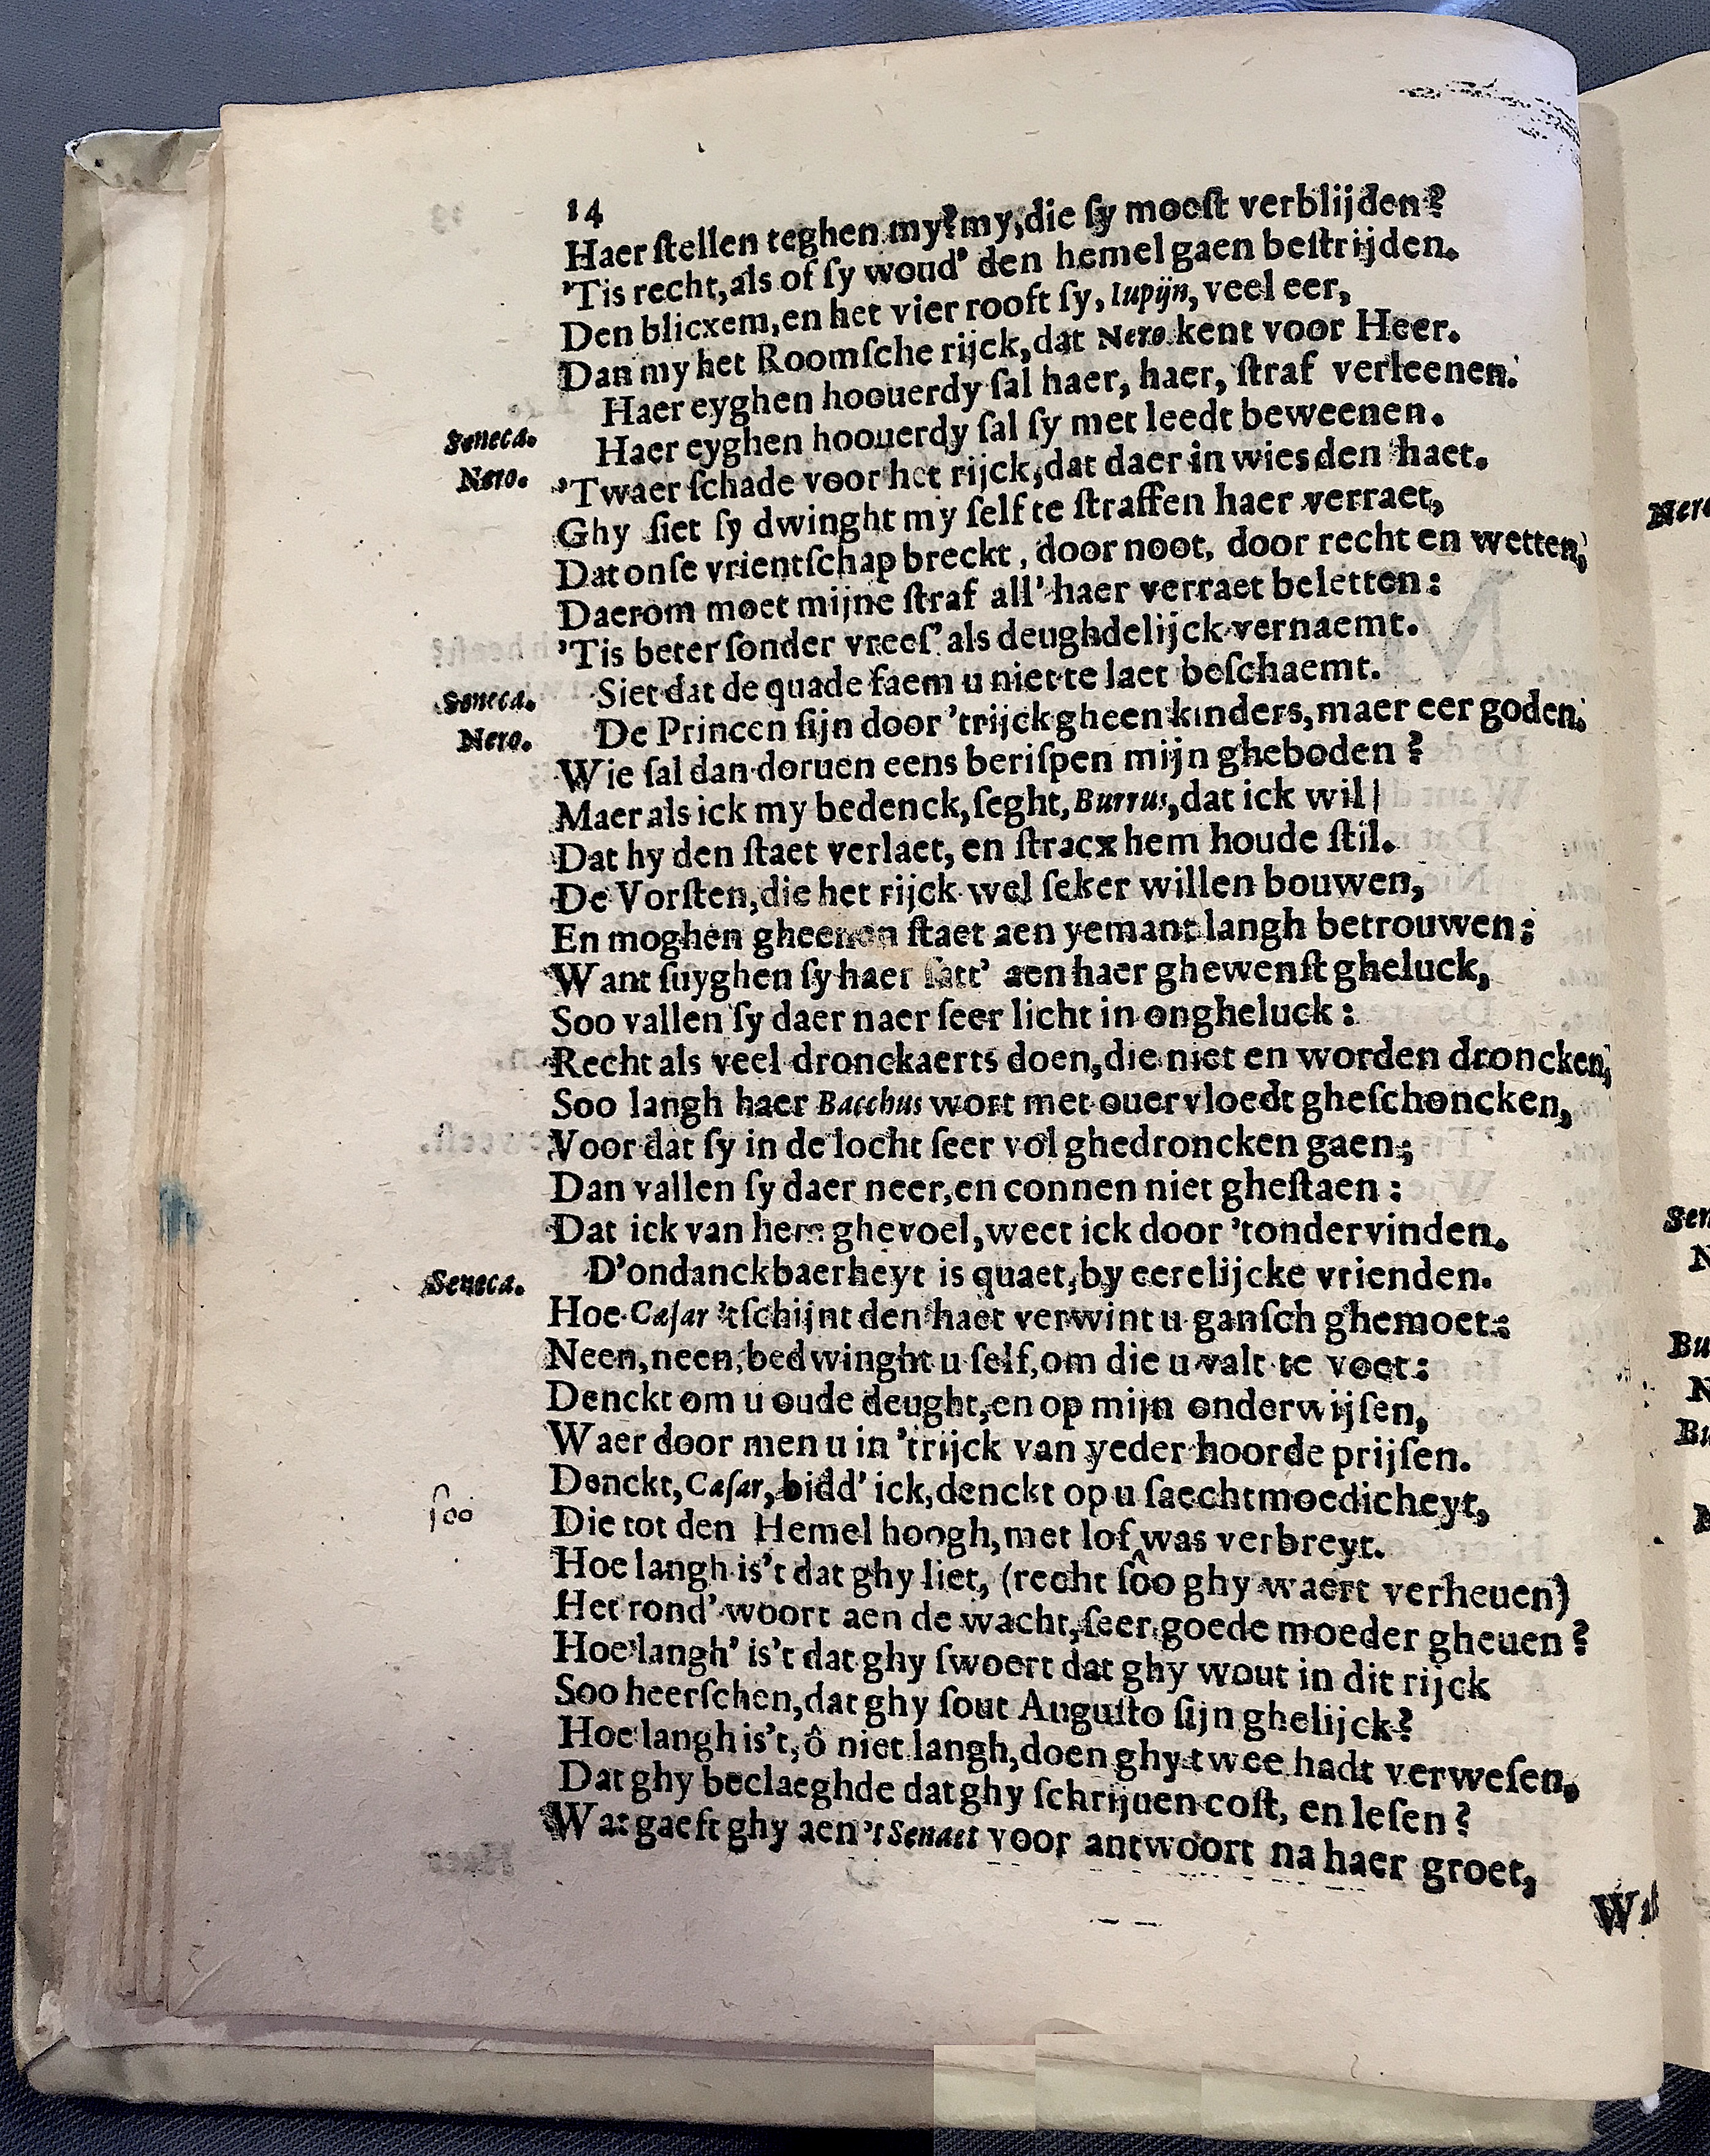 14
Haer ſtellen teghen my? my, die ſy moeſt verblijden?
'Tis recht, als of ſy woud' den hemel gaen beſtrijden.
Den blicxem, en het vier rooft ſy, Iupijn, veel eer,
Dan my het Roomſche rijck, dat Nero kent voor Heer.
Haer eyghen hoouerdy ſal haer, haer, ſtraf verleenen.
Seneca. Haer eyghen hoouerdy ſal ſy met leedt beweenen.
Nero. 'Twaer ſchade voor het rijck, dat daer in wies den haet.
Ghy ſiet ſy dwinght my ſelf te ſtraffen haer verraet,
Dat onſe vrientſchap breckt, door noot, door recht en wetten,
Daerom moet mijne ſtraf all' haer verraet beletten:
'Tis beter ſonder vreeſ' als deughdelijck vernaemt.
Seneca. Siet dat de quade faem u niet te laet beſchaemt.
Nero. De Princen ſijn door 'trijck gheen kinders, maer eer goden.
Wie ſal dan doruen eens beriſpen mijn gheboden?
Maer als ick my bedenck, ſeght, Burrus, dat ick wil|
Dat hy den ſtaet verlaet, en ſtracx hem houde ſtil.
De Vorſten, die het rijck wel ſeker willen bouwen,
En moghen gheenen ſtaet aen yemant langh betrouwen;
Want ſuyghen ſy haer ſatt' aen haer ghewenſt gheluck,
Soo vallen ſy daer naer ſeer licht in ongheluck:
Recht als veel dronckaerts doen, die niet en worden droncken,
Soo langh haer Bacchus wort met ouervloedt gheſchoncken,
Voor dat ſy in de locht ſeer vol ghedroncken gaen;
Dan vallen ſy daer neer, en connen niet gheſtaen:
Dat ick van hem ghevoel, weet ick door 'tondervinden.
Seneca. D'ondanckbaerheyt is quaet, by eerelijcke vrienden.
Hoe Cæſar 'tſchijnt den haet verwint u ganſch ghemoet:
Neen, neen, bedwinght u ſelf, om die u valt te voet:
Denckt om u oude deught, en op mijn onderwijſen,
Waer door men u in 'trijck van yeder hoorde prijſen.
Denckt, Cæſar, bidd' ick, denckt op u ſaechtmoedicheyt,
ſoo Die tot den Hemel hoogh, met lof ‸ was verbreyt.
Hoe langh is't dat ghy liet, (recht ſoo ghy waert verheuen)
Het rond' woort aen de wacht, ſeer goede moeder gheuen?
Hoe langh' is't dat ghy ſwoert dat ghy wout in dit rijck
Soo heerſchen, dat ghy ſout Auguſto ſijn ghelijck?
Hoe langh is't, ô niet langh, doen ghy twee hadt verweſen,
Dat ghy beclaeghde dat ghy ſchrijuen coſt, en leſen?
Wat gaeft ghy aen 't Senaet voor antwoort na haer groet,